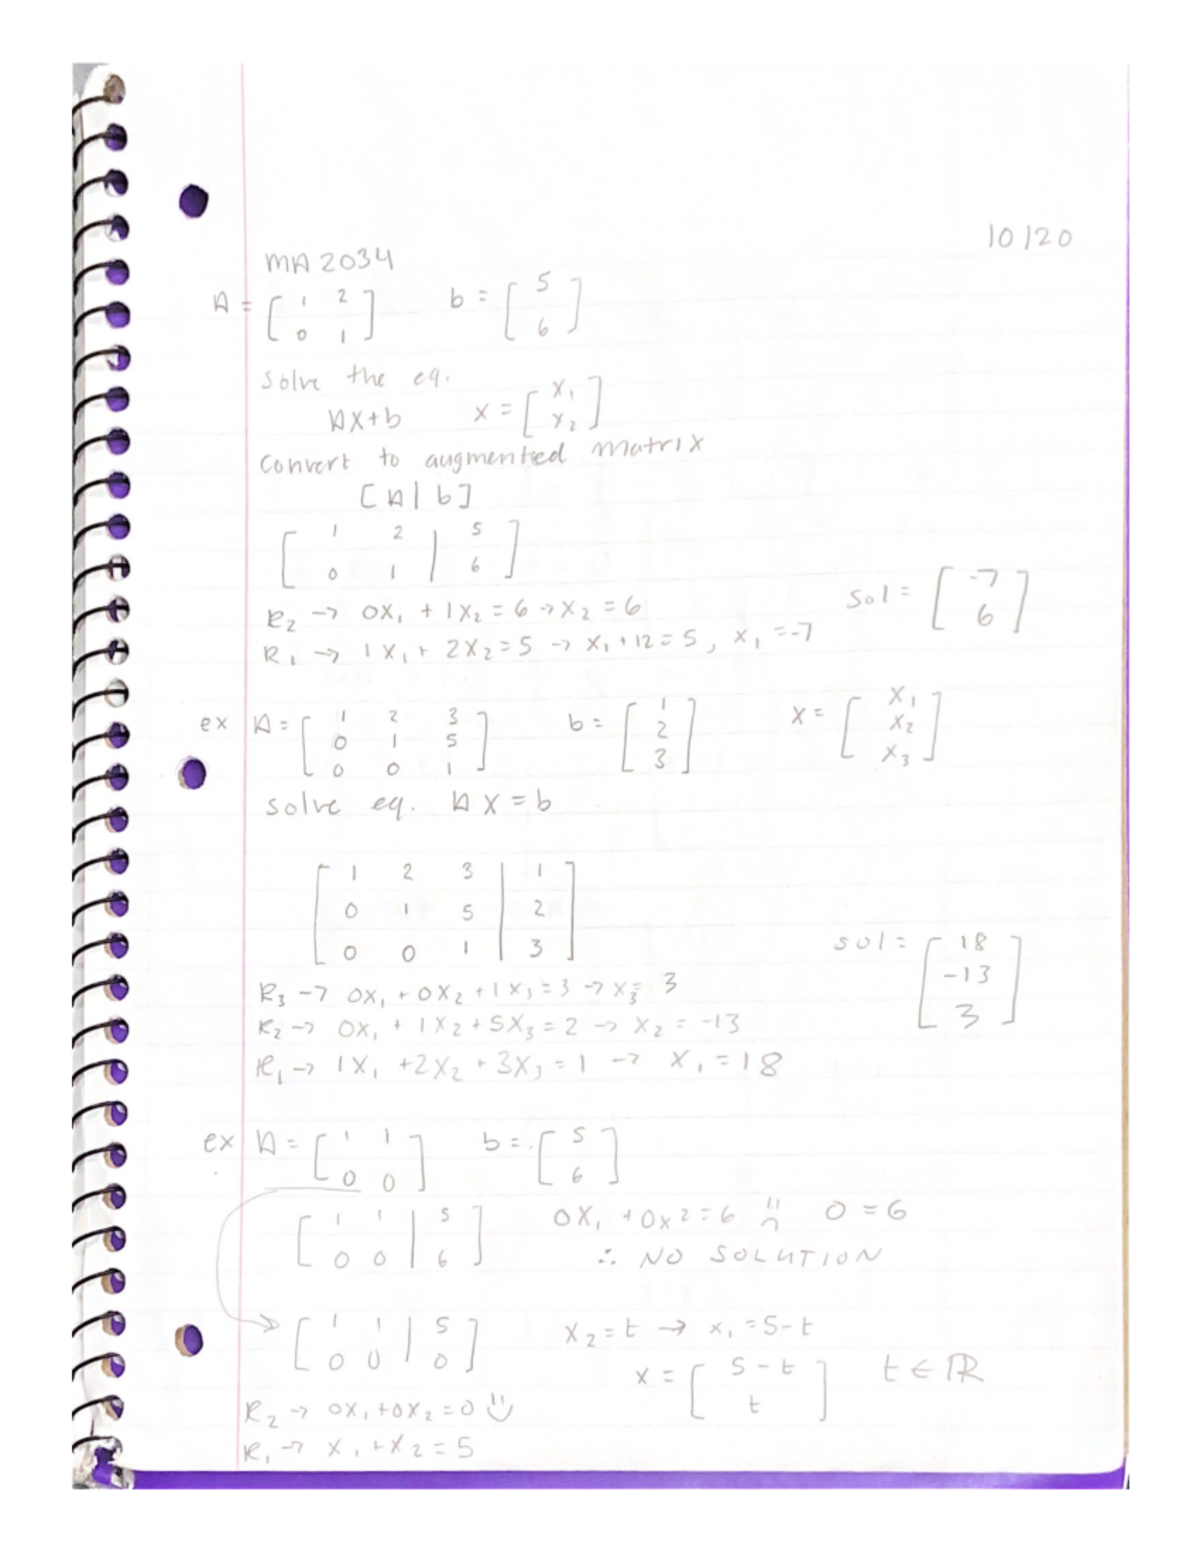 10/20
MA 2034
A = [ 1 2 ; 0 1 ] b = [ 5 ; 6 ]
Solve the eq.
Ax+b x = [ x₁ ; x₂ ]
Convert to augmented matrix
[A|b]
[ 1 2 | 5 ; 0 1 | 6 ]
R₂ → 0x₁ + 1x₂ = 6 → x₂ = 6
R₁ → 1x₁ + 2x₂ = 5 → x₁ + 12 = 5, x₁ = -7
sol = [ -7 ; 6 ]
ex A = [ 1 2 3 ; 0 1 5 ; 0 0 1 ] b = [ 1 ; 2 ; 3 ] x = [ x₁ ; x₂ ; x₃ ]
solve eq. Ax = b
[ 1 2 3 | 1 ; 0 1 5 | 2 ; 0 0 1 | 3 ]
R₃ → 0x₁ + 0x₂ + 1x₃ = 3 → x₃ = 3
R₂ → 0x₁ + 1x₂ + 5x₃ = 2 → x₂ = -13
R₁ → 1x₁ + 2x₂ + 3x₃ = 1 → x₁ = 18
sol = [ 18 ; -13 ; 3 ]
ex A = [ 1 1 ; 0 0 ] b = [ 5 ; 6 ]
[ 1 1 | 5 ; 0 0 | 6 ] 0x₁ + 0x2 = 6 0 = 6
∴ NO SOLUTION
[ 1 1 | 5 ; 0 0 | 0 ] x₂ = t → x₁ = 5-t
x = [ 5-t ; t ] t ∈ ℝ
R₂ → 0x₁ + 0x₂ = 0
R₁ → x₁ + x₂ = 5